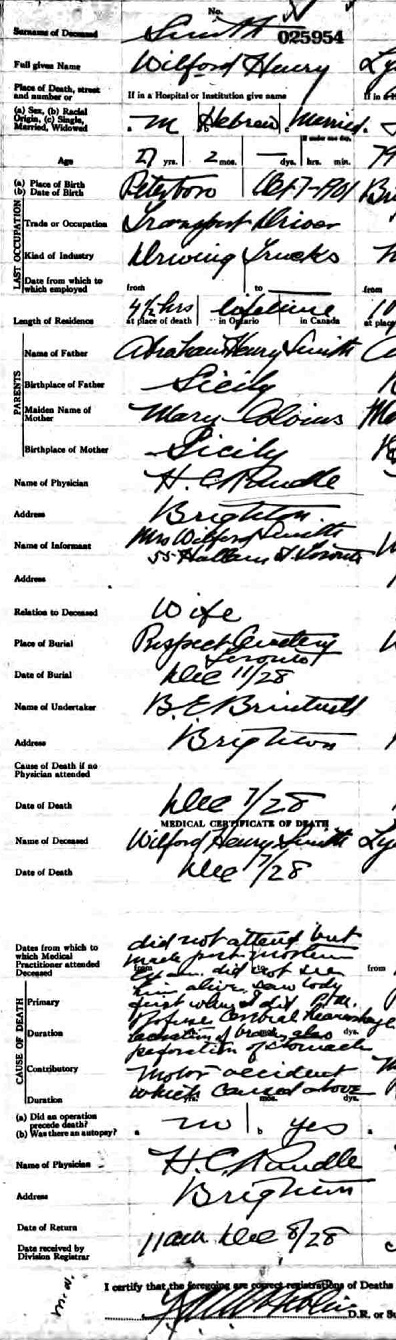 No.
Surname of Deceased Smith 025954
Full given Name Wilford Henry
Place of Death, street
and number or If in a Hospital or Institution give name
(a) Sex, (b) Racial
Origin, (c) Single,
Married, Widowed a M b Hebrew c Married
If under one day,
Age 27 yrs. 2 mos. — dys. hrs. min.
(a) Place of Birth
(b) Date of Birth Peterboro Oct 7-1901
LAST OCCUPATION
Trade or Occupation Transport Driver
Kind of Industry Driving Trucks
Date from which to
which employed from to
Length of Residence 4½ hrs lifetime
at place of death in Ontario in Canada
PARENTS
Name of Father Abraham Henry Smith
Birthplace of Father Sicily
Maiden Name of
Mother Mary
Birthplace of Mother Sicily
Name of Physician H. C. Rundle
Address Brighton
Name of Informant Mrs Wilford Smith
55 Hallam St Toronto
Address
Relation to Deceased Wife
Place of Burial Prospect Cemetery
Toronto
Date of Burial Dec 11/28
Name of Undertaker B. E.
Address Brighton
Cause of Death if no
Physician attended
Date of Death Dec 7/28
MEDICAL CERTIFICATE OF DEATH
Name of Deceased Wilford Henry Smith
Date of Death Dec 7/28
Dates from which to
which Medical
Practitioner attended
Deceased did not attend but
made post-mortem
exam. did not see
him alive. saw body
just when I did P.M.
CAUSE OF DEATH
Primary Profuse cerebral hemorrhage
Duration laceration of brain also
perforation of stomach
Contributory Motor accident
Duration which caused above
(a) Did an operation
precede death?
(b) Was there an autopsy? a no b yes
Name of Physician H. C. Rundle
Address Brighton
Date of Return
Date received by
Division Registrar 11am Dec 8/28
I certify that the foregoing are correct registrations of Deaths
D.R. or Su